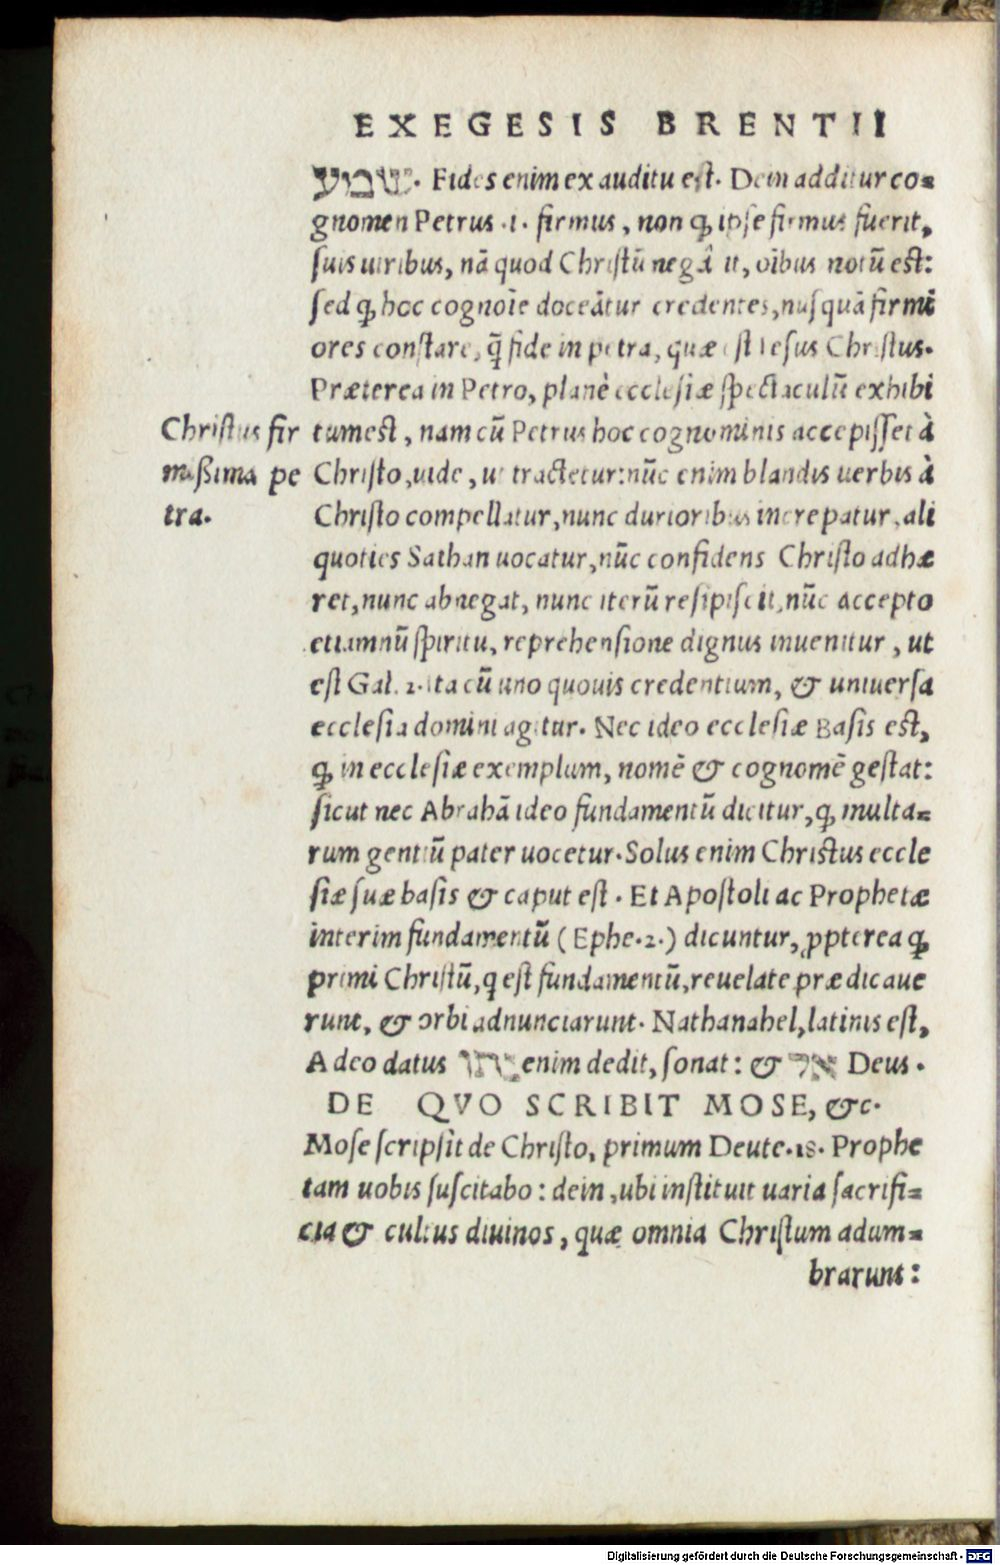 EXEGESIS BRENTII
שמוע. Fides enim ex auditu est. Dein additur co=
gnomen Petrus .i. firmus, non ꝙ ipse firmus fuerit,
suis uiribus, nā quod Christū negarit, oībus notū est:
sed ꝙ hoc cognoīe doceātur credentes, nusquā firmi
ores constare, q̄ fide in petra, quæ est Iesus Christus.
Præterea in Petro, planè ecclesiæ spectaculū exhibi
Christus fir
missima pe
tra.
tum est, nam cū Petrus hoc cognominis accepisset à
Christo, uide, ut tractetur: nūc enim blandis uerbis à
Christo compellatur, nunc durioribus increpatur, ali
quoties Sathan uocatur, nūc confidens Christo adhæ
ret, nunc abnegat, nunc iterū resipiscit, nūc accepto
etiamnū spiritu, reprehensione dignus inuenitur, ut
est Gal. 2. ita cū uno quouis credentium, & uniuersa
ecclesia domini agitur. Nec ideo ecclesiæ Basis est,
ꝙ in ecclesiæ exemplum, nomē & cognomē gestat:
sicut nec Abrahā ideo fundamentū dicitur, ꝙ multa=
rum gentiū pater uocetur. Solus enim Christus eccle
siæ suæ basis & caput est. Et Apostoli ac Prophetæ
interim fundamentū (Ephe.2.) dicuntur, ꝓpterea ꝙ
primi Christū, q est fundamentū, reuelate prædicaue
runt, & orbi adnunciarunt. Nathanahel, latinis est,
A deo datus נתן enim dedit, sonat: & אל Deus.
DE QVO SCRIBIT MOSE, &c.
Mose scripsit de Christo, primum Deute.18. Prophe
tam uobis suscitabo: dein, ubi instituit uaria sacrifi=
cia & cultus diuinos, quæ omnia Christum adum=
brarunt:
Digitalisierung gefördert durch die Deutsche Forschungsgemeinschaft - DFG